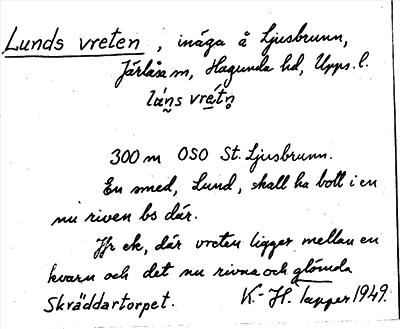 Lunds vreten, inäga å Ljusbrunn,
Järlåsa sn, Hagunda hd, Upps. l.
lúns vrétn
300 m OSO St. Ljusbrunn.
En smed, Lund, skall ha bott i en
nu riven bs där.
Jfr ek, där vreten ligger mellan en
kvarn och det nu rivna och glömda
Skräddartorpet. K.-H. Tapper 1949.